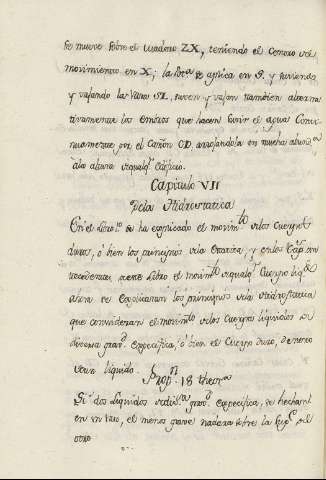 se mueve sobre el quadro ZX, teniendo el centro del
movimiento en X; la Pot.ª se aplica en S. y subiendo
y vajando la Vara SL, suven y vajan tambien alterna
tivamente los embolos que hacen subir el agua Conti
nuamente por el Cañon CD, arrojandola en mucha abund.ª
à la altura de qualq.r edificio.
Capitulo VII
De la Hidrostatica
En el Libro 1.º se ha explicado el movim.to de los Cuerpos
duros, ò bien los principios de la Estatica, y en los Cap.s an
tecedentes de este Libro el movim.to de qualq.r Cuerpo liq.do
aora se explicaran los principios de la Hidrostatica
que consideran el movim.to de los Cuerpos liquidos de
diversa grav.d especifica, ò bien el Cuerpo duro, dentro
de un liquido.
Prop.n 18 Theor.a
Si dos Liquidos de dif.te grav.d especifica, se hechan
en un vaso, el menos grave nadara sobre la sup.e del
otro